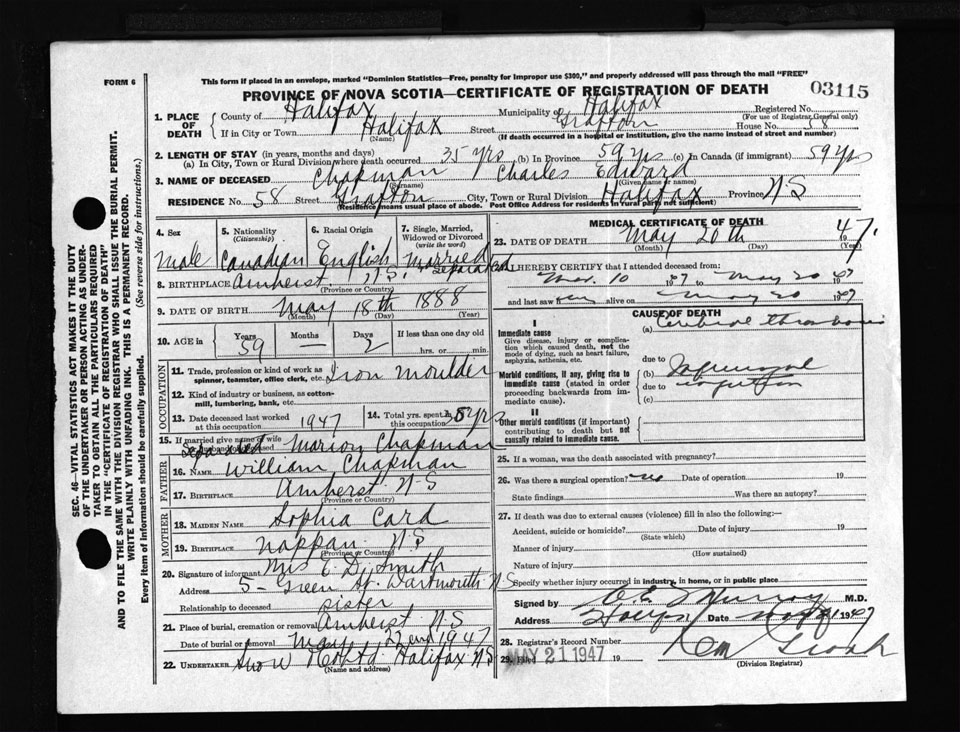 FORM 6
This form if placed in an envelope, marked "Dominion Statistics—Free, penalty for improper use $300," and properly addressed will pass through the mail "FREE"
PROVINCE OF NOVA SCOTIA—CERTIFICATE OF REGISTRATION OF DEATH
03115
1. PLACE OF DEATH
County of Halifax Municipality of Halifax Registered No.
(For use of Registrar General only)
If in City or Town Halifax Street Grafton House No. 58
(Name) (If death occurred in a hospital or institution, give the name instead of street and number)
2. LENGTH OF STAY (in years, months and days)
(a) In City, Town or Rural Division where death occurred 35 yrs (b) In Province 59 yrs (c) In Canada (if immigrant) 59 yrs
3. NAME OF DECEASED Chapman Charles Edward
(Surname) (Given name or names)
RESIDENCE No. 58 Street Grafton City, Town or Rural Division Halifax Province N.S
(Residence means usual place of abode. Post Office Address for residents in rural parts not sufficient)
4. Sex
5. Nationality (Citizenship)
6. Racial Origin
7. Single, Married, Widowed or Divorced (write the word)
Male Canadian English Married Separated
8. BIRTHPLACE Amherst N.S.
(Province or Country)
9. DATE OF BIRTH May 18th 1888
(Month) (Day) (Year)
10. AGE in Years Months Days If less than one day old
59 — 2 hrs. or min.
OCCUPATION
11. Trade, profession or kind of work as spinner, teamster, office clerk, etc. Iron Moulder
12. Kind of industry or business, as cotton-mill, lumbering, bank, etc.
13. Date deceased last worked at this occupation 1947
14. Total yrs. spent in this occupation yrs
15. If married give name of wife
Separated Marion Chapman
FATHER
16. NAME William Chapman
17. BIRTHPLACE Amherst N.S
(Province or Country)
MOTHER
18. MAIDEN NAME Sophia Card
19. BIRTHPLACE Nappan N.S
(Province or Country)
20. Signature of informant Mrs E. D. Smith
Address 5 - Green St. Dartmouth N.S
Relationship to deceased sister
21. Place of burial, cremation or removal Amherst N.S
Date of burial or removal May 22nd 1947
22. UNDERTAKER Halifax N.S
(Name and address)
MEDICAL CERTIFICATE OF DEATH
23. DATE OF DEATH May 20th 1947
(Month) (Day) (Year)
I HEREBY CERTIFY that I attended deceased from:
Mar. 10 1947 to May 20 1947
and last saw him alive on May 20 1947
CAUSE OF DEATH
I
Immediate cause
Give disease, injury or complication which caused death, not the mode of dying, such as heart failure, asphyxia, asthenia, etc.
(a) Cerebral thrombosis
due to
Morbid conditions, if any, giving rise to immediate cause (stated in order proceeding backwards from immediate cause).
(b)
due to
(c)
II
Other morbid conditions (if important) contributing to death but not causally related to immediate cause.
25. If a woman, was the death associated with pregnancy?
26. Was there a surgical operation? no Date of operation 19
State findings Was there an autopsy?
27. If death was due to external causes (violence) fill in also the following:—
Accident, suicide or homicide? Date of injury 19
(State which)
Manner of injury
(How sustained)
Nature of injury
Specify whether injury occurred in industry, in home, or in public place
Signed by Murray M.D.
Address Date May 21 1947
28. Registrar's Record Number
29. Filed MAY 21 1947 19
(Division Registrar)
SEC. 46—VITAL STATISTICS ACT MAKES IT THE DUTY OF THE UNDERTAKER OR PERSON ACTING AS UNDERTAKER TO OBTAIN ALL THE PARTICULARS REQUIRED IN THE "CERTIFICATE OF REGISTRATION OF DEATH"
AND TO FILE THE SAME WITH THE DIVISION REGISTRAR WHO SHALL ISSUE THE BURIAL PERMIT.
WRITE PLAINLY WITH UNFADING INK. THIS IS A PERMANENT RECORD.
Every item of information should be carefully supplied. (See reverse side for instructions.)